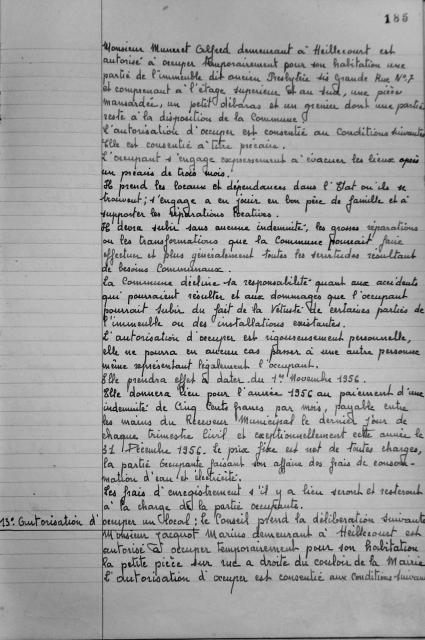 185
Monsieur Muneret Alfred demeurant à Heillecourt est
autorisé à occuper temporairement pour son habitation une
partie de l'immeuble dit ancien Presbytère sis Grande Rue N°7
et comprenant à l'étage supérieur et au sud, une pièce
mansardée, un petit débaras et un grenier dont une partie
reste à la disposition de la Commune
L'autorisation d'occuper est consentie au Conditions suivantes
Elle est consentie à titre précaire.
L'occupant s'engage expressément à évacuer les lieux après
un préavis de trois mois.
Il prend les locaux et dépendances dans l'Etat où ils se
trouvent; s'engage a en jouir en bon père de famille et à
supporter les réparations locatives.
Il devra subir sans aucune indemnité, les grosses réparations
ou les transformations que la Commune pourrait faire
effectuer et plus généralement toutes les servitudes résultant
de besoins Communaux.
La Commune décline sa responsabilité quant aux accidents
qui pourraient résulter et aux dommages que l'occupant
pourrait subir du fait de la Vétusté de certaines parties de
l'immeuble ou des installations existantes.
L'autorisation d'occuper est rigoureusement personnelle,
elle ne pourra en aucun cas passer à une autre personne
même représentant légalement l'occupant.
Elle prendra effet à dater du 1er Novembre 1956.
Elle donnera lieu pour l'année 1956 au paiement d'une
indemnité de Cinq Cents francs par mois, payable entre
les mains du Receveur Municipal le dernier jour de
chaque trimestre Civil et exceptionnellement cette année le
31 Décembre 1956. Le prix fixé est net de toutes charges,
la partie Occupante faisant son affaire des frais de consom-
mation d'eau et électricité.
Les frais d'enregistrement s'il y a lieu seront et resteront
à la charge de la partie occupante.
13° Autorisation d'occuper un local; le Conseil prend la délibération suivante
Monsieur Jacquot Marius demeurant à Heillecourt est
autorisé à occuper temporairement pour son habitation
la petite pièce sur rue a droite du couloir de la Mairie
L'autorisation d'occuper est consentie aux Conditions suivantes